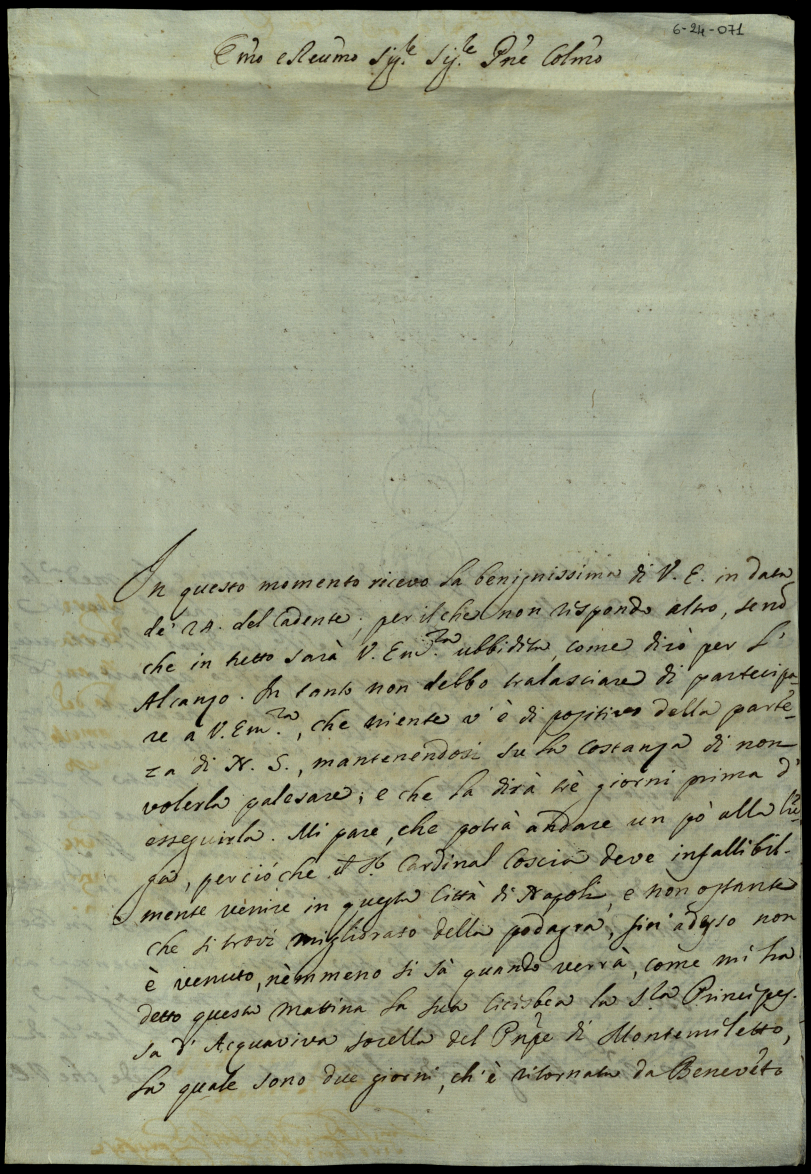 6-24-071
Emo e Reumo Sig.re Sig.re Pne Colmo
In questo momento ricevo la benignissima di V. E. in data
de' 24. del Cadente; per il che non rispondo altro, senõ
che in tutto sarà V. Em.za ubbidita, come dirò per l'
Alcanzo. In tanto non debbo tralasciare di partecipa-
re à V. Em.za, che niente v'è di positivo della partẽ-
za di N. S., mantenendosi su la costanza di non
volerla palesare; e che la dirà trè giorni prima d'
esseguirla. Mi pare, che potrà andare un pò alla lũ-
ga, perciòche il Sr. Cardinal Coscia deve infallibil-
mente venire in questa Città di Napoli, e non ostante
che si trovi migliorato della podagra, sin' adesso non
è venuto, nèmmeno si sà quando verrà, come mi hà
detto questa mattina la sua Cicisbea la S.ra Principes-
sa d' Acquaviva sorella del Pnpe di Montemiletto,
la quale sono due giorni, ch'è ritornata da Benevẽto